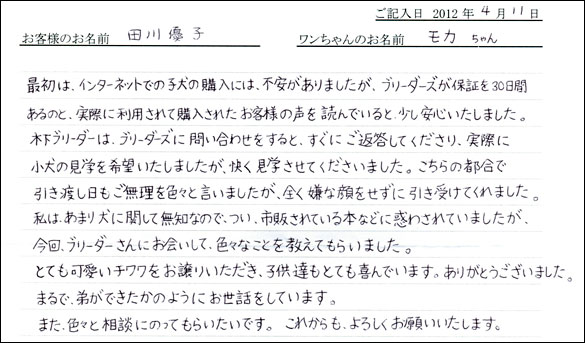 ご記入日 2012 年 4 月 11 日
お客様のお名前 田川優子 ワンちゃんのお名前 モカ ちゃん
最初は、インターネットでの子犬の購入には、不安がありましたが、ブリーダーズが保証を30日間
あるのと、実際に利用されて購入されたお客様の声を読んでいると、少し安心いたしました。
木下ブリーダーは、ブリーダーズに問い合わせをすると、すぐにご返答してくださり、実際に
小犬の見学を希望いたしましたが、快く見学させてくださいました。こちらの都合で
引き渡し日もご無理を色々と言いましたが、全く嫌な顔をせずに引き受けてくれました。
私は、あまり犬に関して無知なので、つい、市販されている本などに惑わされていましたが、
今回、ブリーダーさんにお会いして、色々なことを教えてもらいました。
とても可愛いチワワをお譲りいただき、子供達もとても喜んでいます。ありがとうございました。
まるで、弟ができたかのようにお世話をしています。
また、色々と相談にのってもらいたいです。これからも、よろしくお願いいたします。